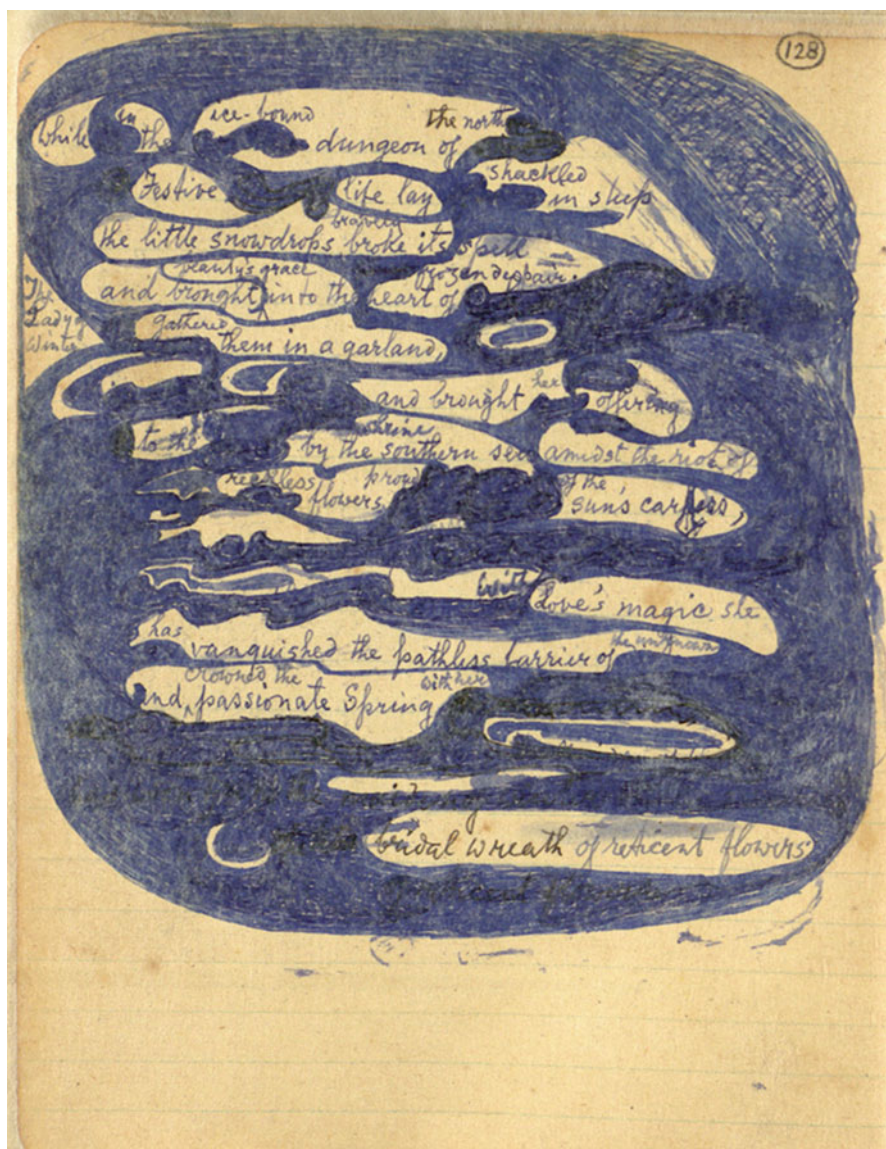 128
while in the ice-bound dungeon of the north
Festive life lay shackled in sleep
the little snowdrops bravely broke its spell
and brought beauty's grace into the heart of frozen despair.
The Lady of Winter gathered them in a garland,
and brought her offering
to the shrine by the southern sea amidst the riot of
reckless proud flowers of the sun's caress,
with Love's magic she
has vanquished the pathless barrier of the unknown
and crowned the passionate Spring with her
bridal wreath of reticent flowers